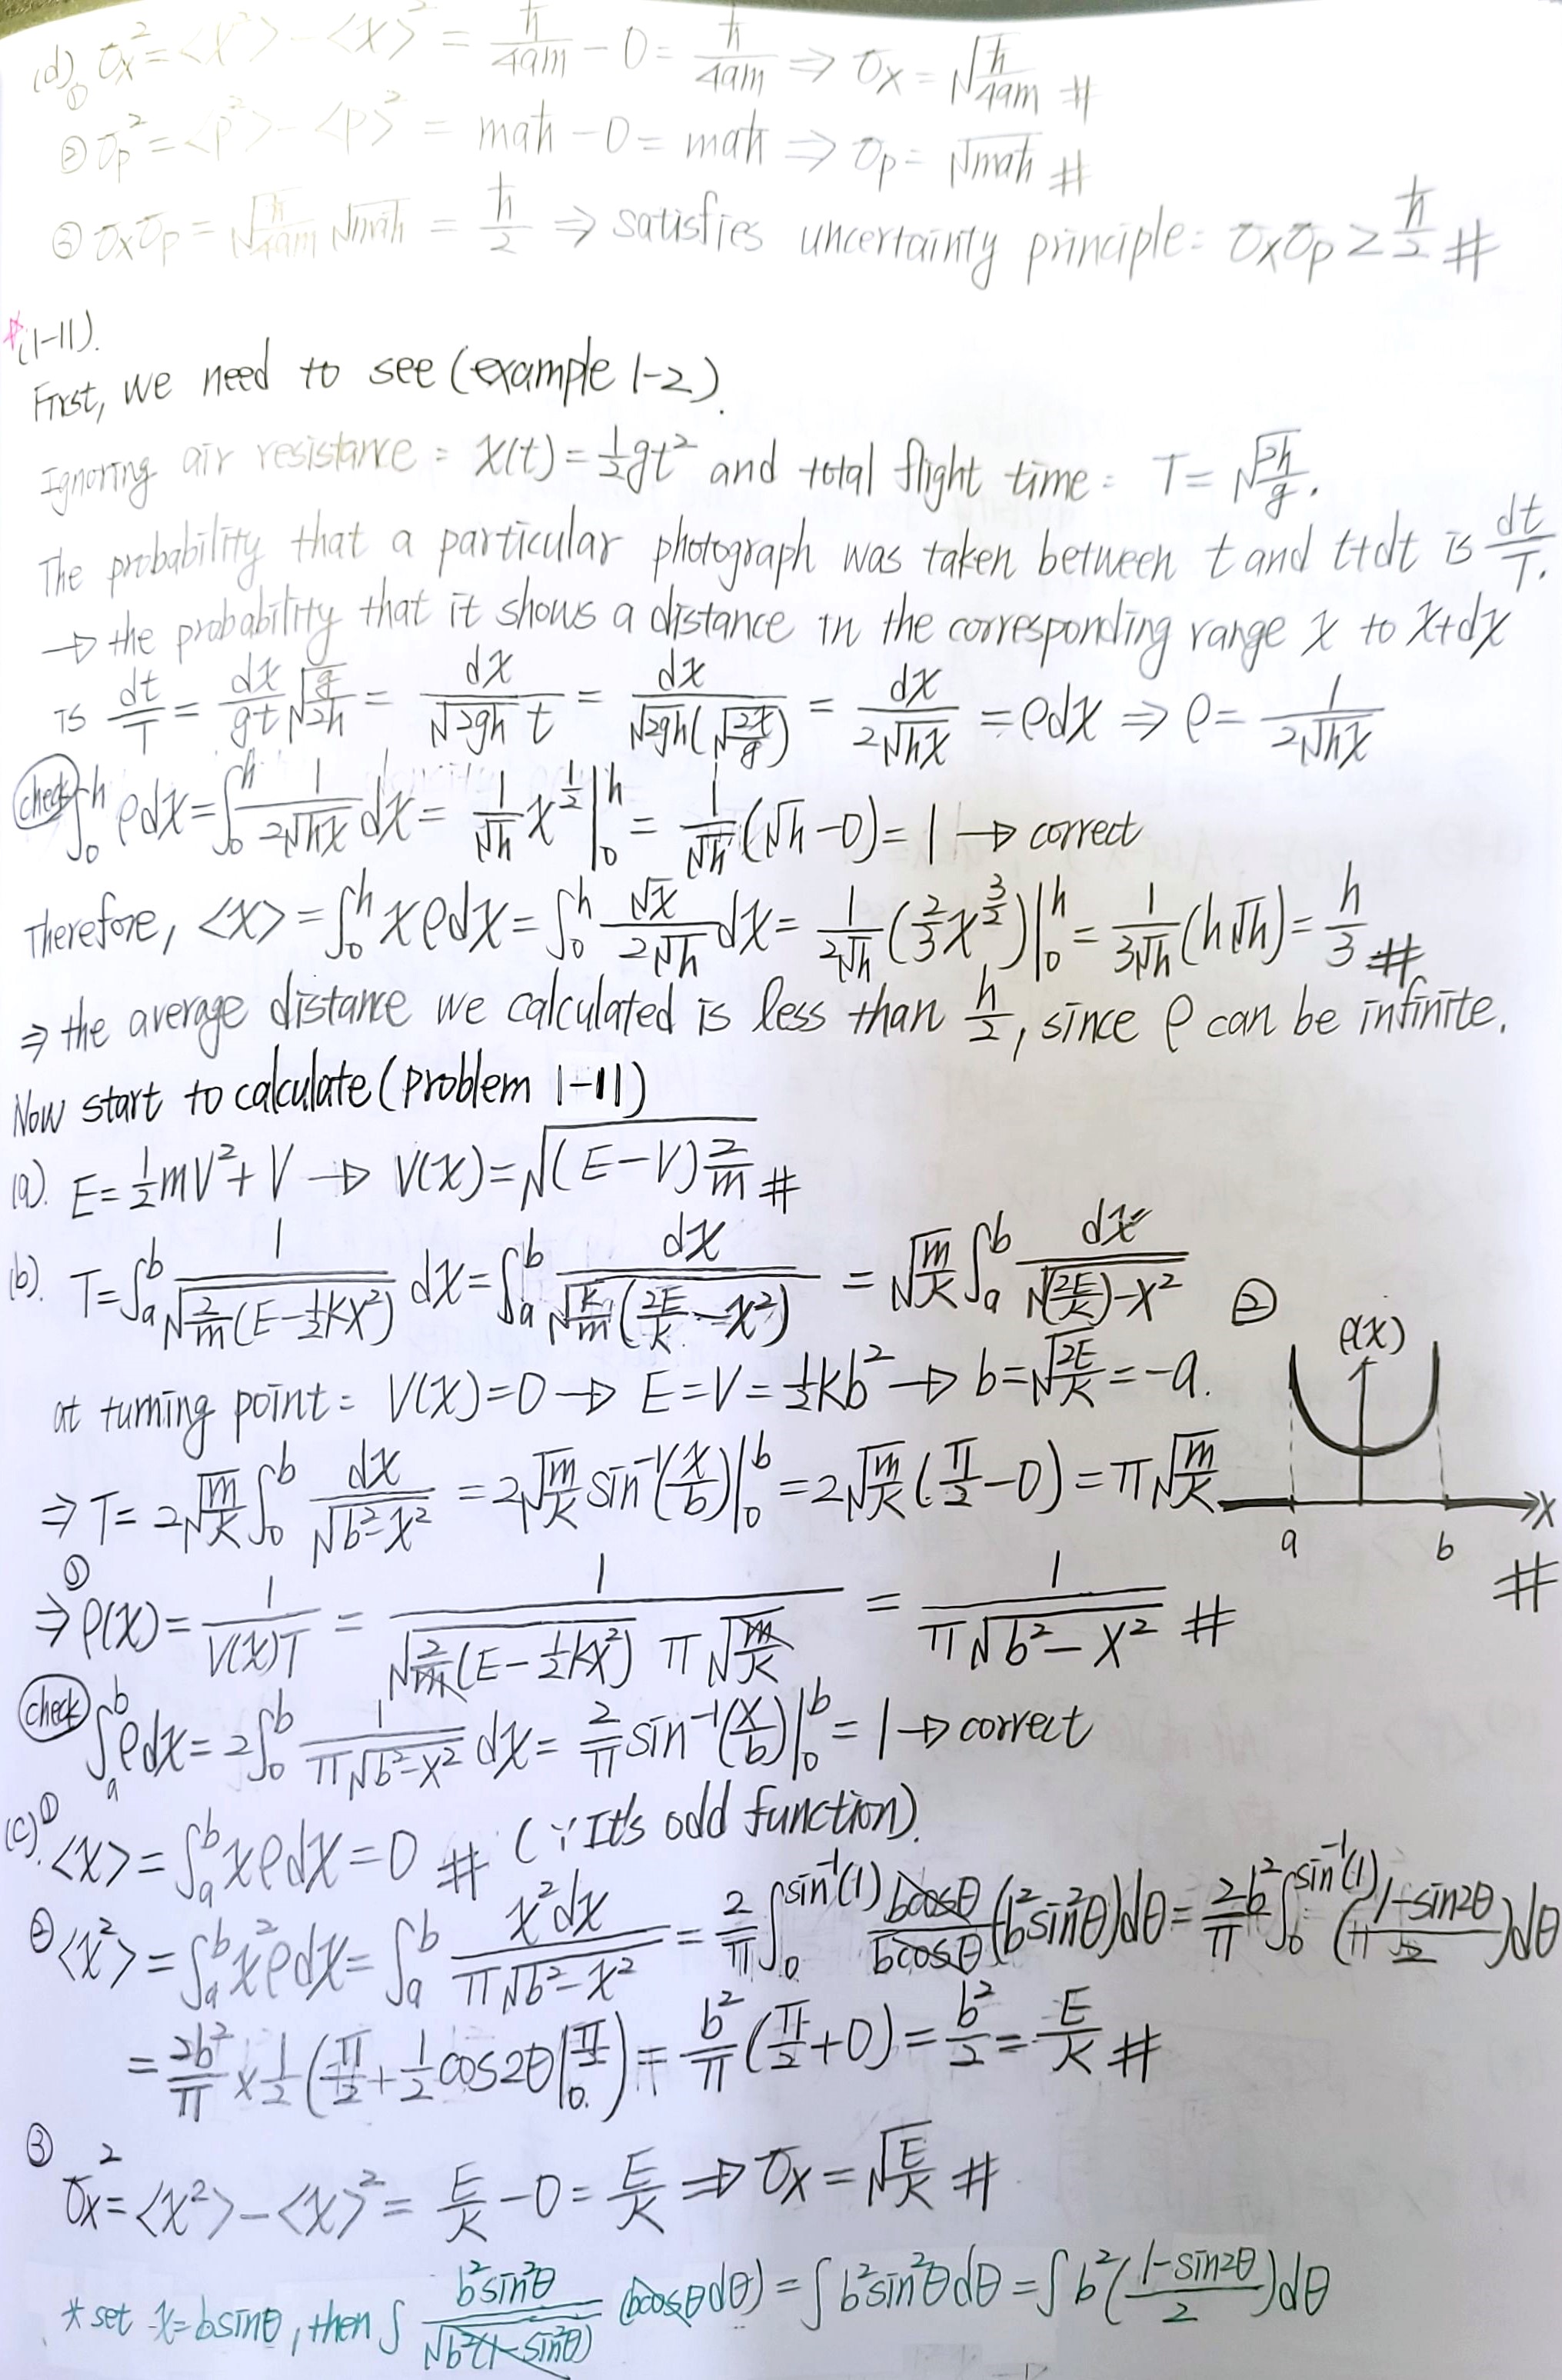 (d) ① σx² = <x²> - <x>² = ħ/4am - 0 = ħ/4am ⇒ σx = √(ħ/4am) #
② σp² = <p²> - <p>² = maħ - 0 = maħ ⇒ σp = √(maħ) #
③ σxσp = √(ħ/4am) √(maħ) = ħ/2 ⇒ satisfies uncertainty principle: σxσp ≥ ħ/2 #
*(1-11).
First, we need to see (example 1-2).
Ignoring air resistance: x(t) = 1/2 gt² and total flight time: T = √(2h/g).
The probability that a particular photograph was taken between t and t+dt is dt/T.
→ the probability that it shows a distance in the corresponding range x to x+dx
is dt/T = dx/gt √(g/2h) = dx/(√(2gh) t) = dx/(√(2gh)(√(2x/g))) = dx/(2√(hx)) = ρdx ⇒ ρ = 1/(2√(hx))
(check) ∫₀ʰ ρdx = ∫₀ʰ 1/(2√(hx)) dx = 1/√h x^(1/2) |₀ʰ = 1/√h (√h - 0) = 1 → correct
Therefore, <x> = ∫₀ʰ xρdx = ∫₀ʰ √x/(2√h) dx = 1/(2√h) (2/3 x^(3/2)) |₀ʰ = 1/(3√h) (h√h) = h/3 #
⇒ the average distance we calculated is less than h/2, since ρ can be infinite.
Now start to calculate (problem 1-11)
(a). E = 1/2 mV² + V → V(x) = √((E-V) 2/m) #
(b). T = ∫ₐᵇ 1/√(2/m (E - 1/2 kx²)) dx = ∫ₐᵇ dx/√(k/m (2E/k - x²)) = √(m/k) ∫ₐᵇ dx/√((2E/k) - x²)
at turning point: V(x) = 0 → E = V = 1/2 kb² → b = √(2E/k) = -a.
⇒ T = 2√(m/k) ∫₀ᵇ dx/√(b²-x²) = 2√(m/k) sin⁻¹(x/b) |₀ᵇ = 2√(m/k) (π/2 - 0) = π√(m/k)
② ρ(x)
x
a b
#
① ⇒ ρ(x) = 1/(V(x)T) = 1/(√(2/m (E - 1/2 kx²)) π√(m/k)) = 1/(π√(b² - x²)) #
(check) ∫ₐᵇ ρdx = 2∫₀ᵇ 1/(π√(b²-x²)) dx = 2/π sin⁻¹(x/b) |₀ᵇ = 1 → correct
(c). ① <x> = ∫ₐᵇ xρdx = 0 # (∵ It's odd function).
② <x²> = ∫ₐᵇ x²ρdx = ∫ₐᵇ x²dx/(π√(b²-x²)) = 2/π ∫₀^(sin⁻¹(1)) bcosθ/bcosθ (b²sin²θ)dθ = 2b²/π ∫₀^(sin⁻¹(1)) (1-sin2θ/2)dθ
= 2b²/π × 1/2 (π/2 + 1/2 cos2θ |₀^(π/2)) = b²/π (π/2 + 0) = b²/2 = E/k #
③ σx² = <x²> - <x>² = E/k - 0 = E/k ⇒ σx = √(E/k) #
* set x = bsinθ, then ∫ b²sin²θ/√(b²(1-sin²θ)) (bcosθdθ) = ∫ b²sin²θdθ = ∫ b²(1-sin2θ/2)dθ